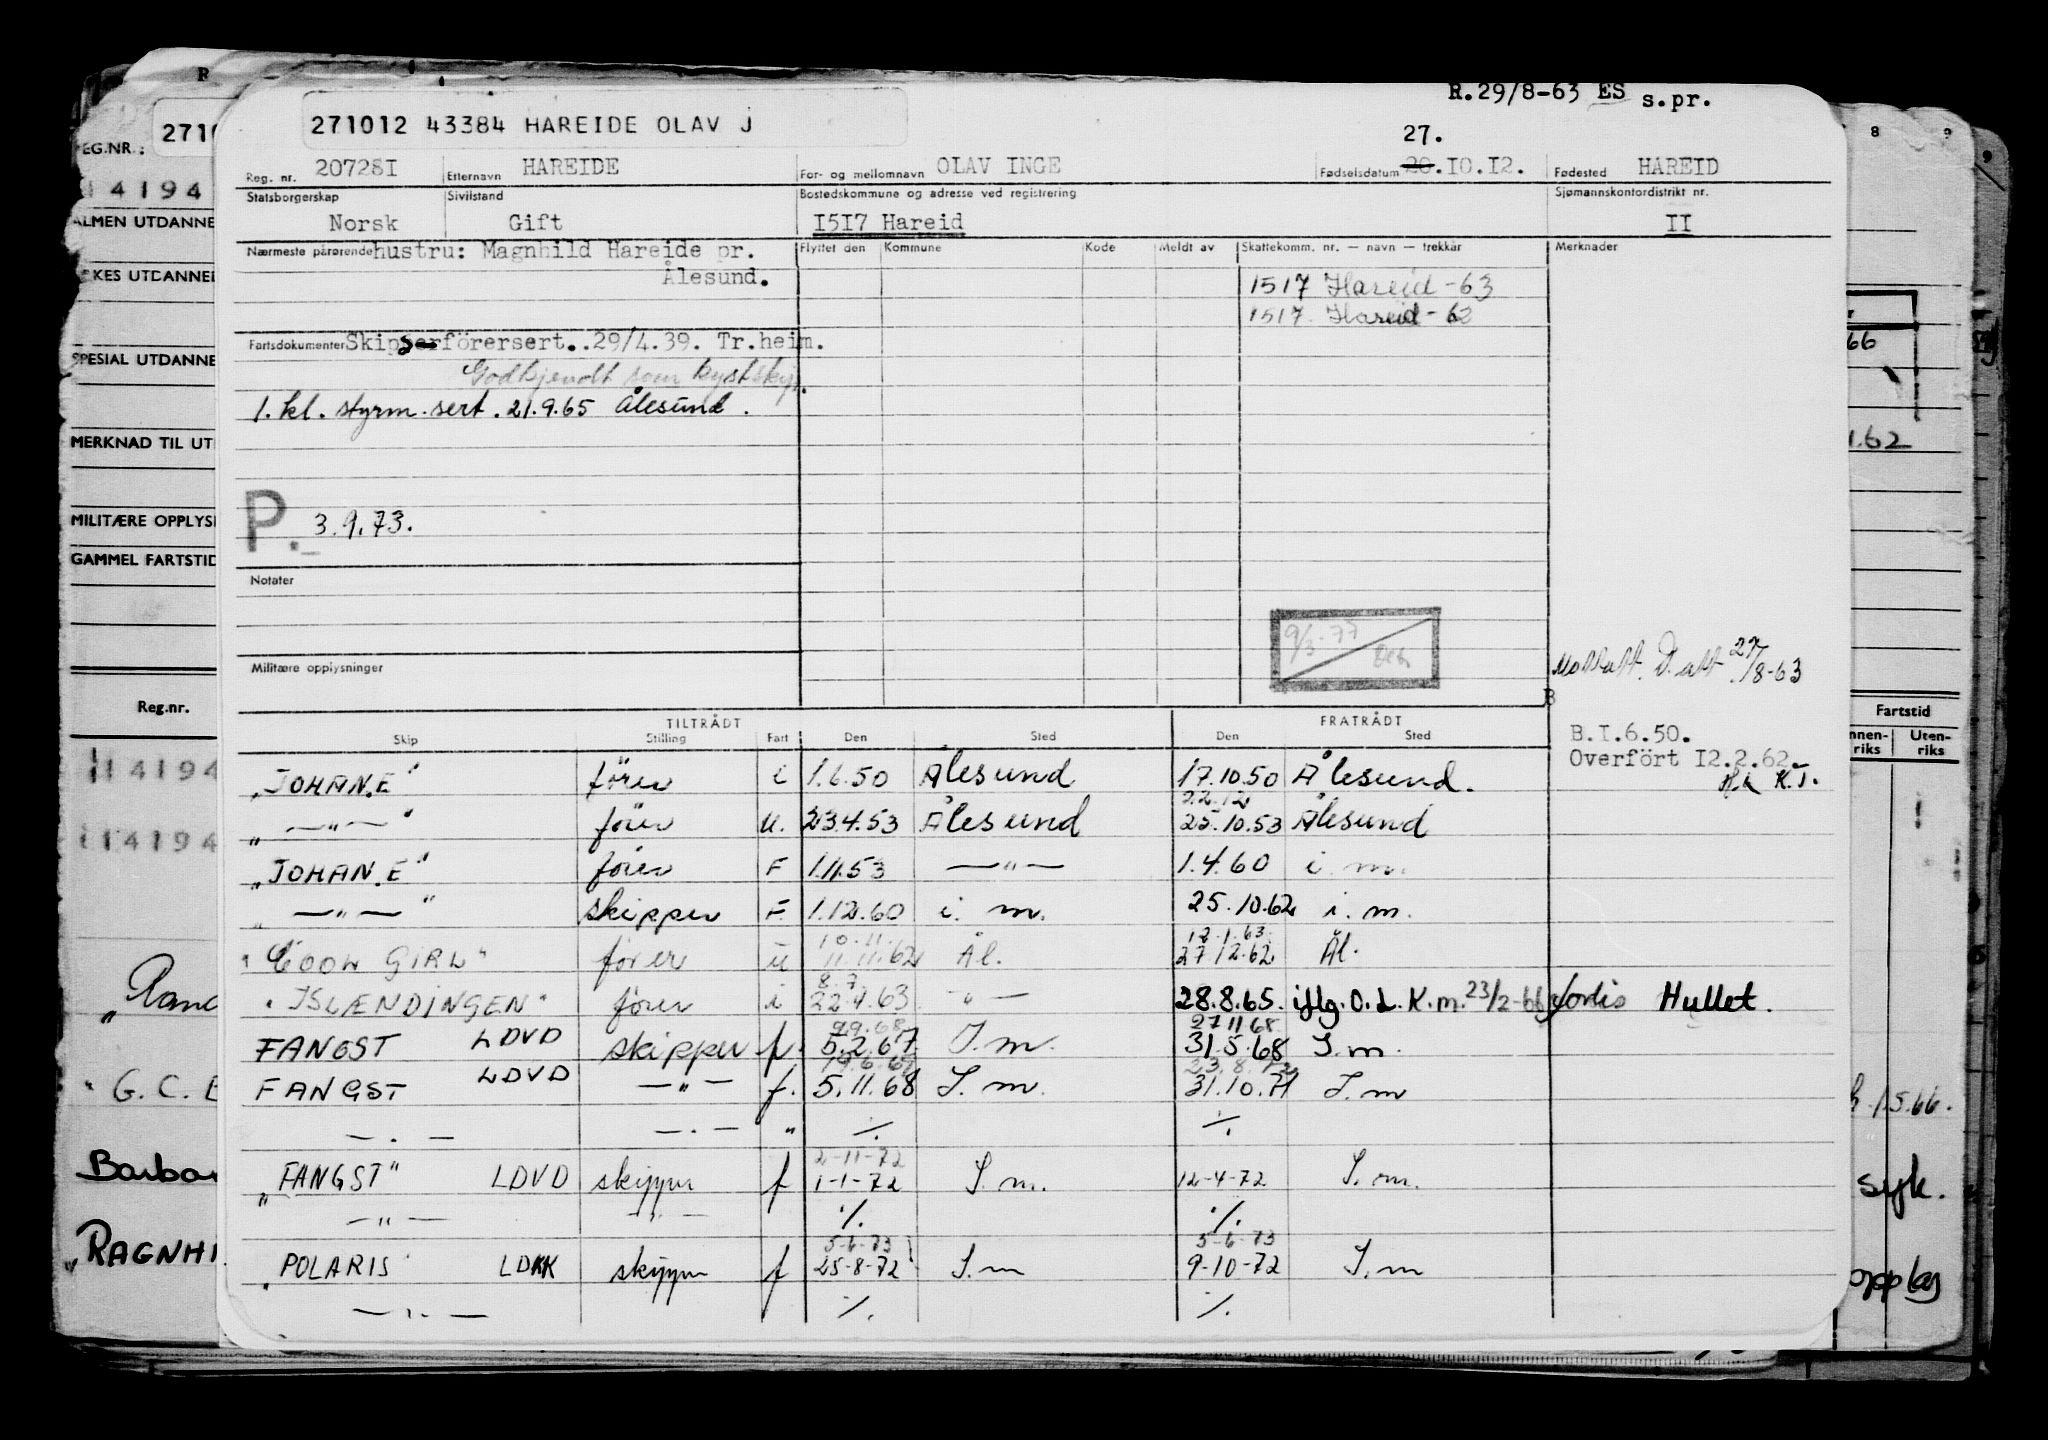 R.29/8-63 ES s.pr.
271012 43384 HAREIDE OLAV J
27.
Reg. nr. 207281 Etternavn HAREIDE For- og mellomnavn OLAV INGE Fødselsdatum 20.IO.I2. Fødested HAREID
Statsborgerskap Sivilstand Bostedskommune og adresse ved registrering Sjømannskontordistrikt nr.
Norsk Gift I5I7 Hareid II
Nærmeste pårørende hustru: Magnhild Hareide pr. Flyttet den Kommune Kode Meldt av Skattekomm. nr. — navn — trekkår Merknader
Ålesund.
1517 Hareid -63
1517 Hareid - 62
Fartsdokumenter Skipserförersert..29/4.39. Tr.heim.
Godkjendt som kystskip.
1. kl. styrm. sert. 21.9.65 Ålesund.
P. 3.9.73.
Notater
9/3-77
Militære opplysninger
Mottatt D. att 27/8-63
B
TILTRÅDT FRATRÅDT
Skip Stilling Fart Den Sted Den Sted
B.I.6.50.
Overfört I2.2.62.
K.T.
"JOHAN.E" förer i 1.6.50 Ålesund 17.10.50 Ålesund.
22.12
" —"— " förer U. 23.4.53 Ålesund 25.10.53 Ålesund
"JOHAN.E" förer F 1.11.53 —"— 1.4.60 i. m.
" —"— " skipper F. 1.12.60 i. m. 25.10.62 i. m.
10.11. 12.1.63.
"COOL GIRL" förer u 11.11.62 Ål. 27.12.62 Ål.
8.7
"ISLÆNDINGEN" förer i 22.4.63 "— 28.8.65. iflg. O.L.K.m. 23/2-66 forlis Hullet.
9.9.68 27 11 68
FANGST LDVD skipper f. 5.2.67 I.m. 31.5.68 I.m.
FANGST LDVD —"— f. 5.11.68 I.m. 31.10.71 I.m
— . — — . — " ./. ./.
2-11-72
"FANGST" LDVD skipper f 1-1-72 I.m. 12-4-72 I.m.
—"— " — ./. ./.
5-6-73 5-6-73
"POLARIS LDKK skipper f 25-8-72 I.m 9-10-72 I.m
—"— ./. ./.
R
271
REG.NR.:
14194
ALMEN UTDANNE
YRKES UTDANNEL
SPESIAL UTDANNE
MERKNAD TIL UT
MILITÆRE OPPLYSN
GAMMEL FARTSTID
Reg.nr.
114194
14194
G. C. E
Barbar
"RAGNHI
8 9
9
66
1.62
Fartstid
nnen-riks Uten-riks
1.5.66.
syk.
opplag